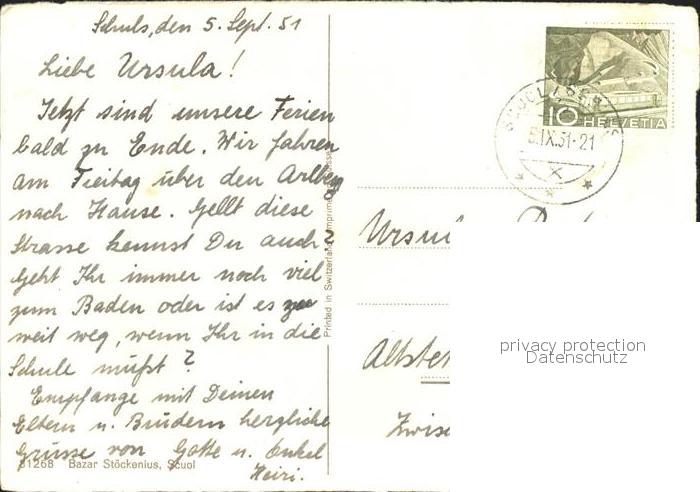 Schuls, den 5. Sept. 51
Liebe Ursula!
Jetzt sind unsere Ferien
bald zu Ende. Wir fahren
am Freitag über den Arlberg
nach Hause. Gellt diese
Strasse kennst Du auch?
Geht Ihr immer noch viel
zum Baden oder ist es zu
weit weg, wenn Ihr in die
Schule müßt?
Empfange mit Deinen
Eltern u. Brüdern herzliche
Grüsse von Gotte u. Onkel
Heiri.
31268 Bazar Stöckenius, Scuol
Printed in Switzerland
10 HELVETIA
5.IX.51-21
Ursul
Altstet
privacy protection
Datenschutz